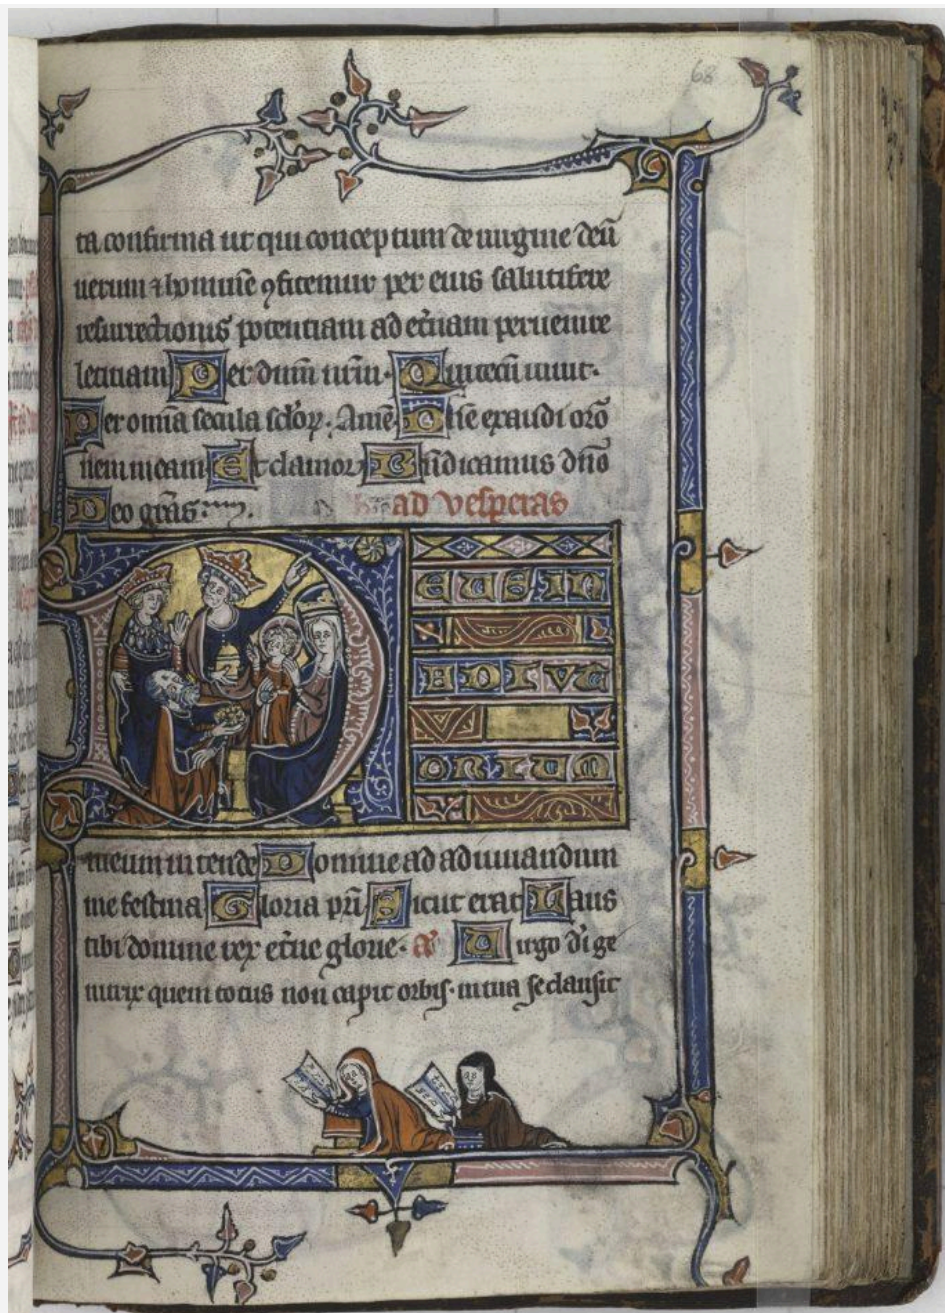 68
ta confirma ut qui conceptum de uirgine deū
uerum ⁊ hominē ꝯfitemur per eius salutifere
resurrectionis potentiam ad etn̄am peruenire
letitiam Per dnm̄ nr̄m. Qui tecū uiuit.
Per omīa secula sclōꝝ. Amē. Dn̄e exaudi oro
nem meam Et clamor Bn̄dicamus dn̄o
Deo grās ad vesperas
DEUS IN
ADIUT
ORIUM
meum intende Domine ad adiuuandum
me festina Gloria pr̄i Sicut erat Laus
tibi domine rex etn̄e glorie. añ Uirgo dī ge
nitrix quem totus non capit orbis. in tua se clausit